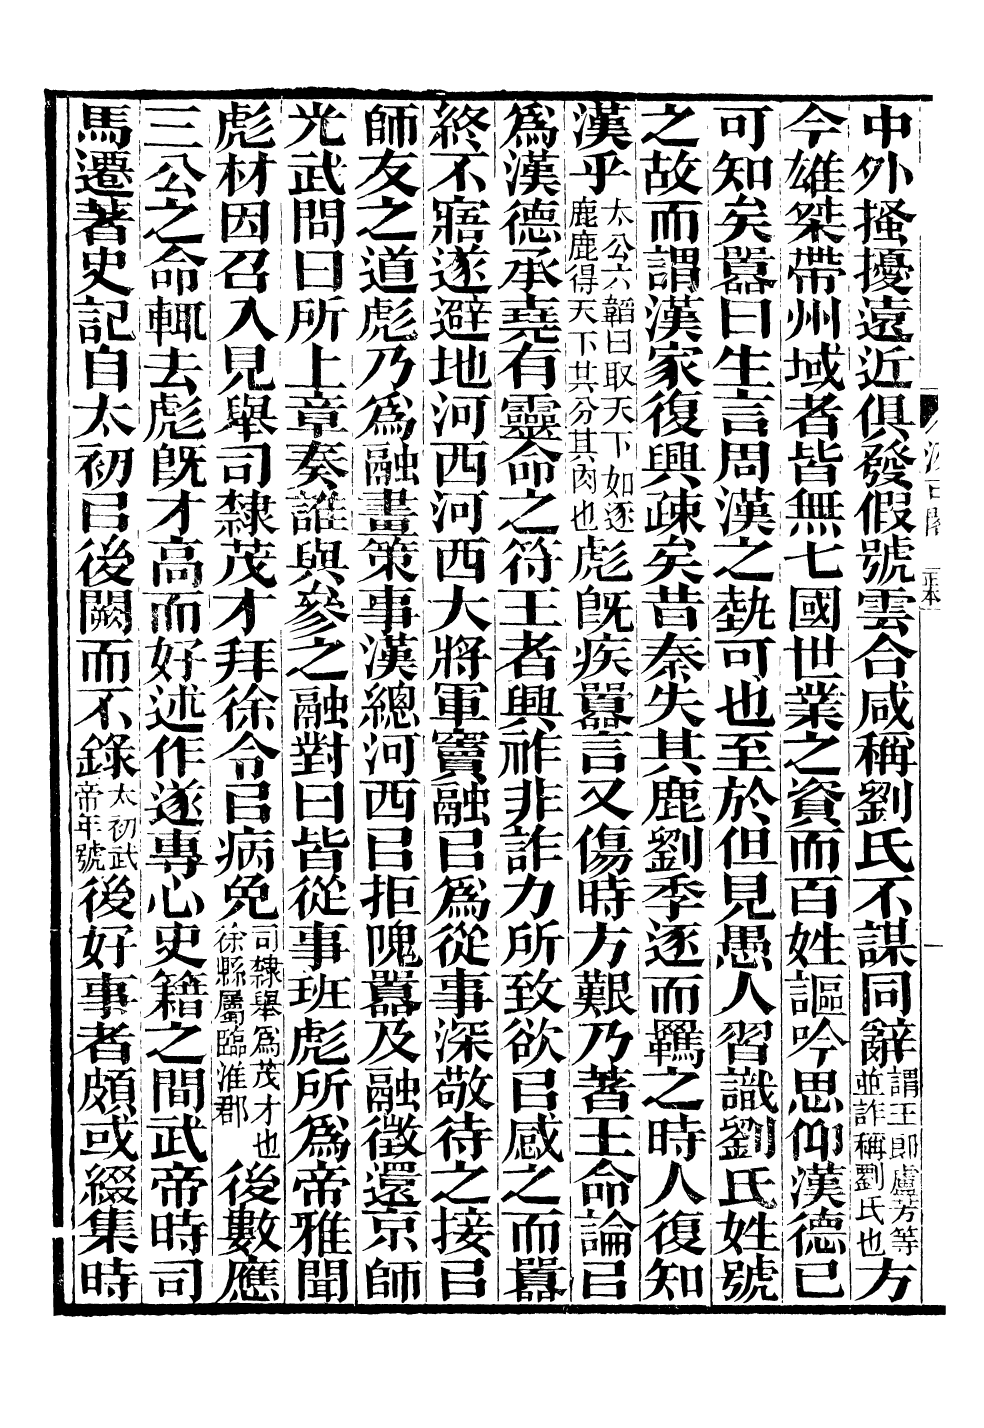 中外搔擾遠近俱發假號雲合咸稱劉氏不謀同辭謂王郎盧芳等並詐稱劉氏也方
今雄桀帶州域者皆無七國世業之資而百姓謳吟思仰漢德已
可知矣囂曰生言周漢之埶可也至於但見愚人習識劉氏姓號
之故而謂漢家復興疎矣昔秦失其鹿劉季逐而羈之時人復知
漢乎太公六韜曰取天下如逐鹿鹿得天下共分其肉也彪旣疾囂言又傷時方艱乃著王命論㠯
爲漢德承堯有靈命之符王者興祚非詐力所致欲㠯感之而囂
終不寤遂避地河西河西大將軍竇融㠯爲從事深敬待之接㠯
師友之道彪乃爲融畫策事漢總河西㠯拒隗囂及融徵還京師
光武問曰所上章奏誰與參之融對曰皆從事班彪所爲帝雅聞
彪材因召入見舉司隸茂才拜徐令㠯病免司隸舉爲茂才也徐縣屬臨淮郡後數應
三公之命輒去彪旣才高而好述作遂專心史籍之閒武帝時司
馬遷著史記自太初㠯後闕而不錄太初武帝年號後好事者頗或綴集時